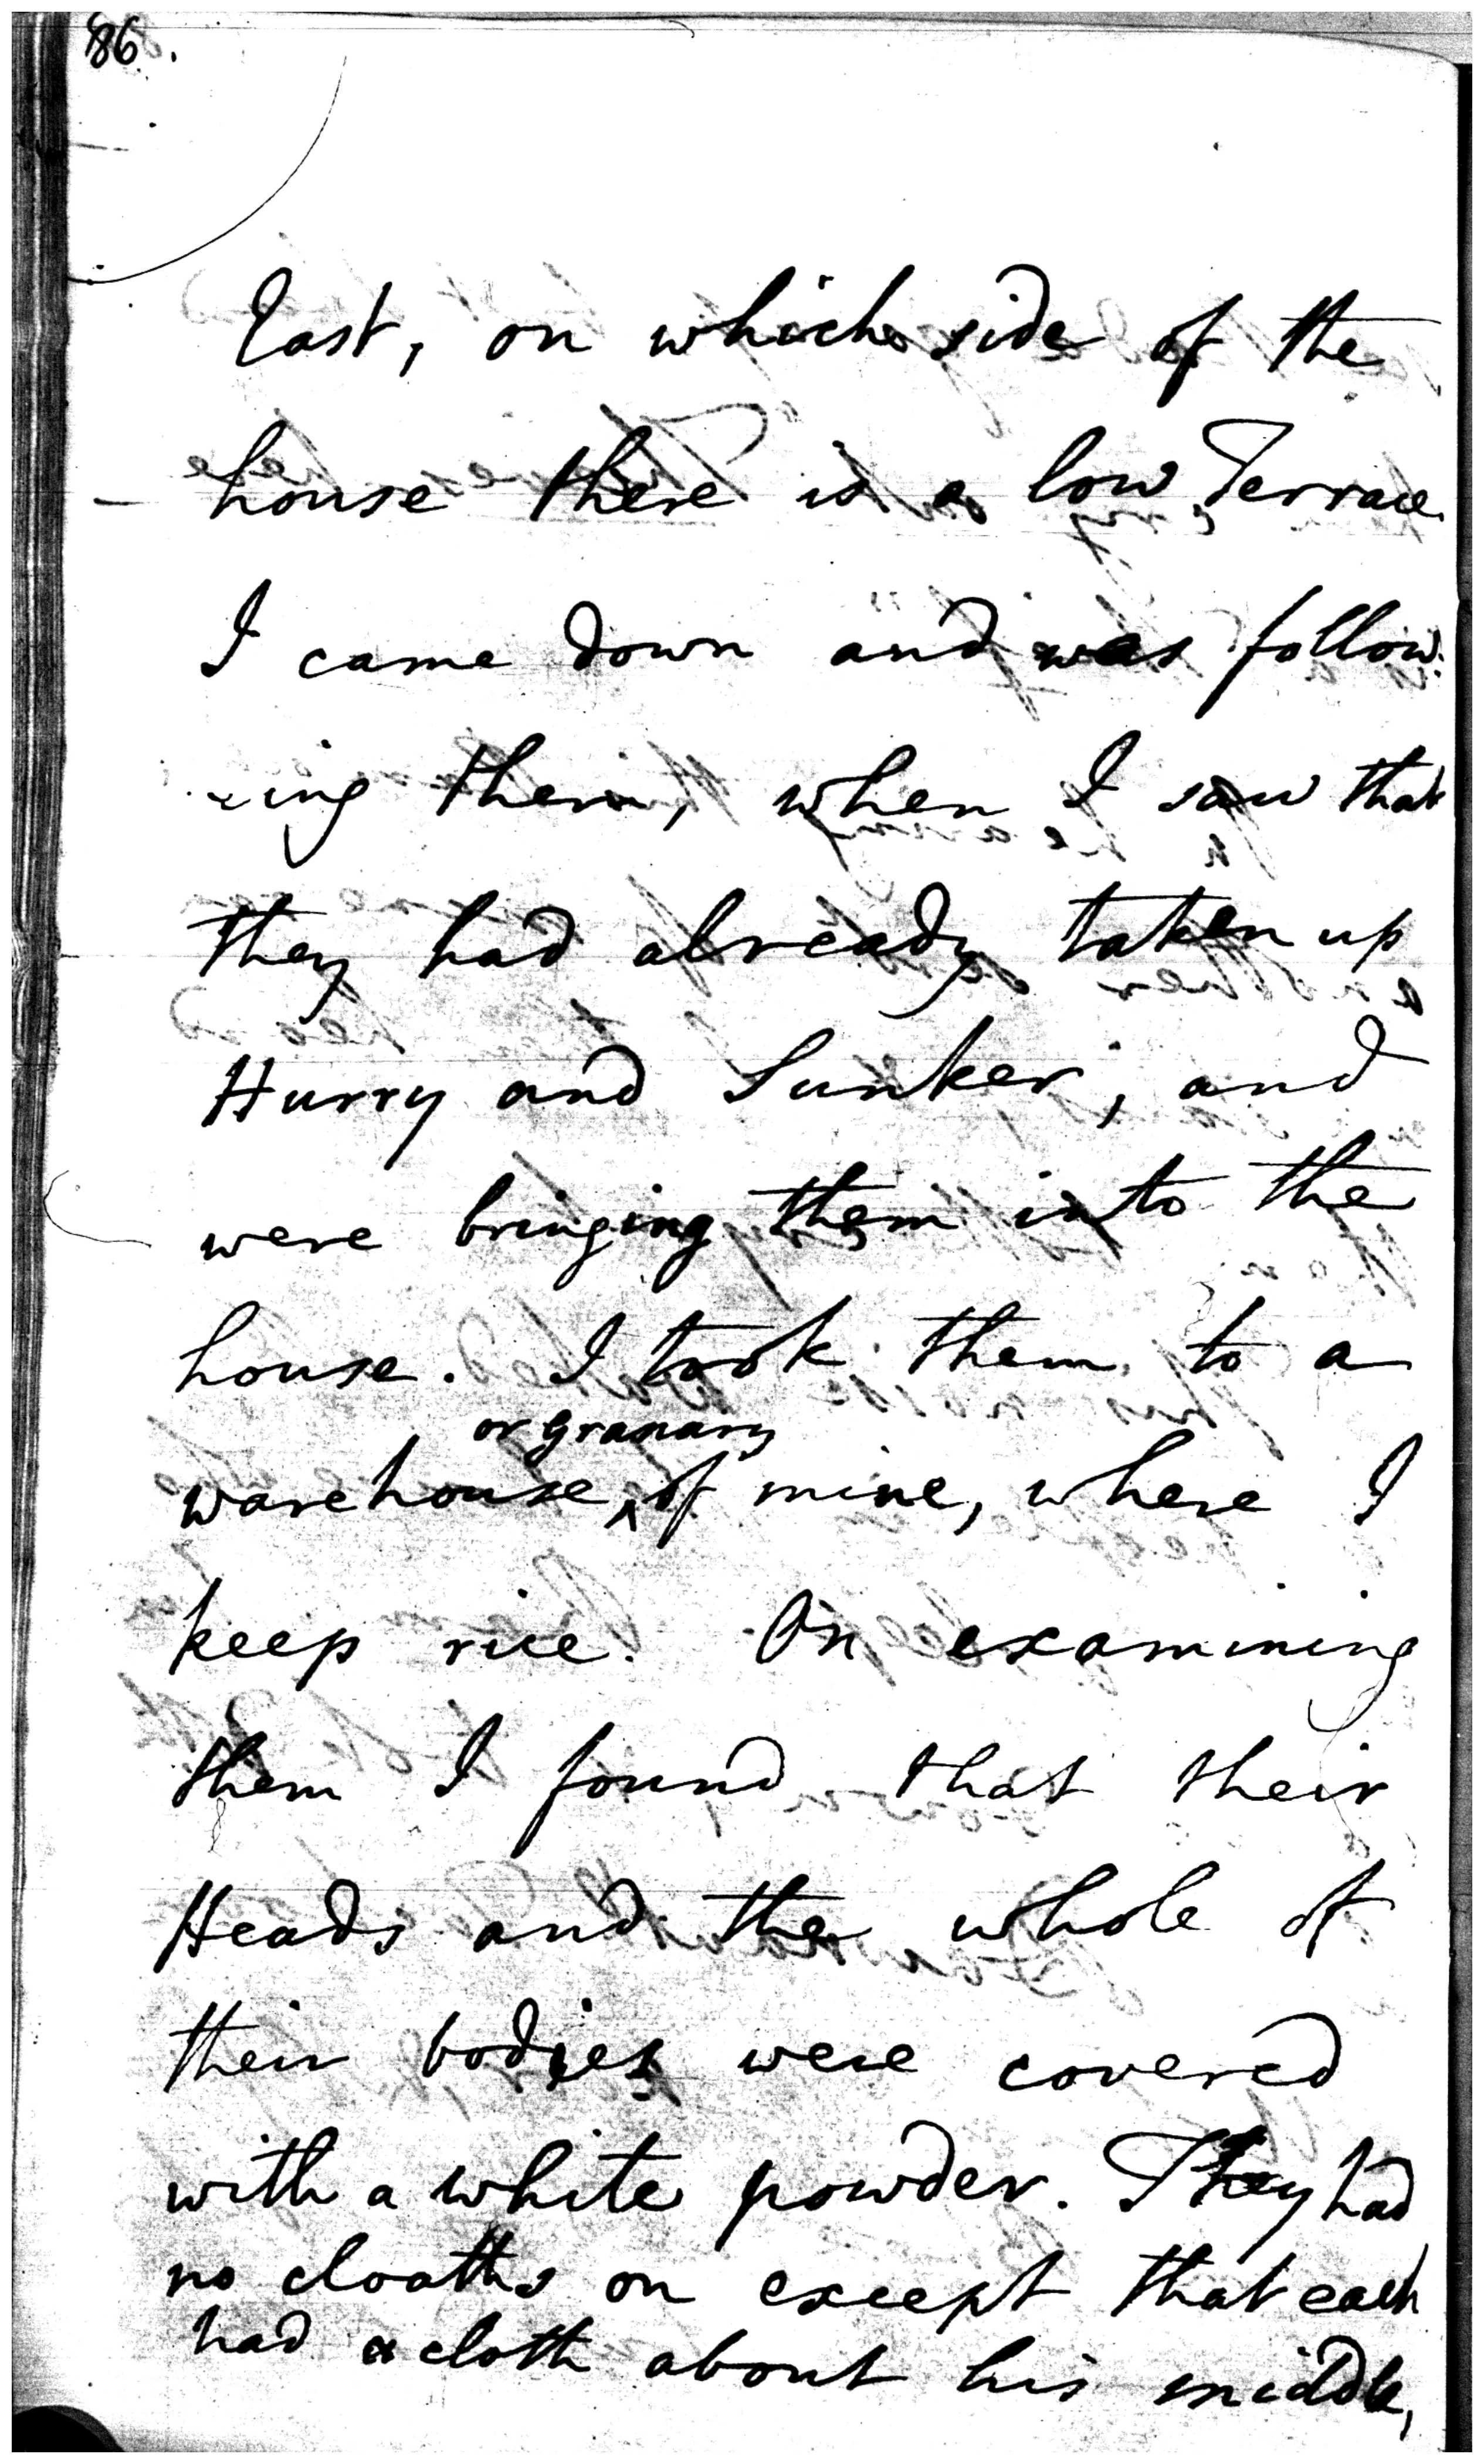 86.
East, on which side of the
house there is a low Terrace.
I came down and was follow:
:ing them, when I saw that
they had already taken up
Hurry and Sunker; and
were bringing them into the
house. I took them to a
or granary
warehouse ^ of mine, where I
keep rice. On examining
them I found that their
Heads and the whole of
their bodies were covered
with a white powder. They had
no cloaths on except that each
had a cloth about his middle,